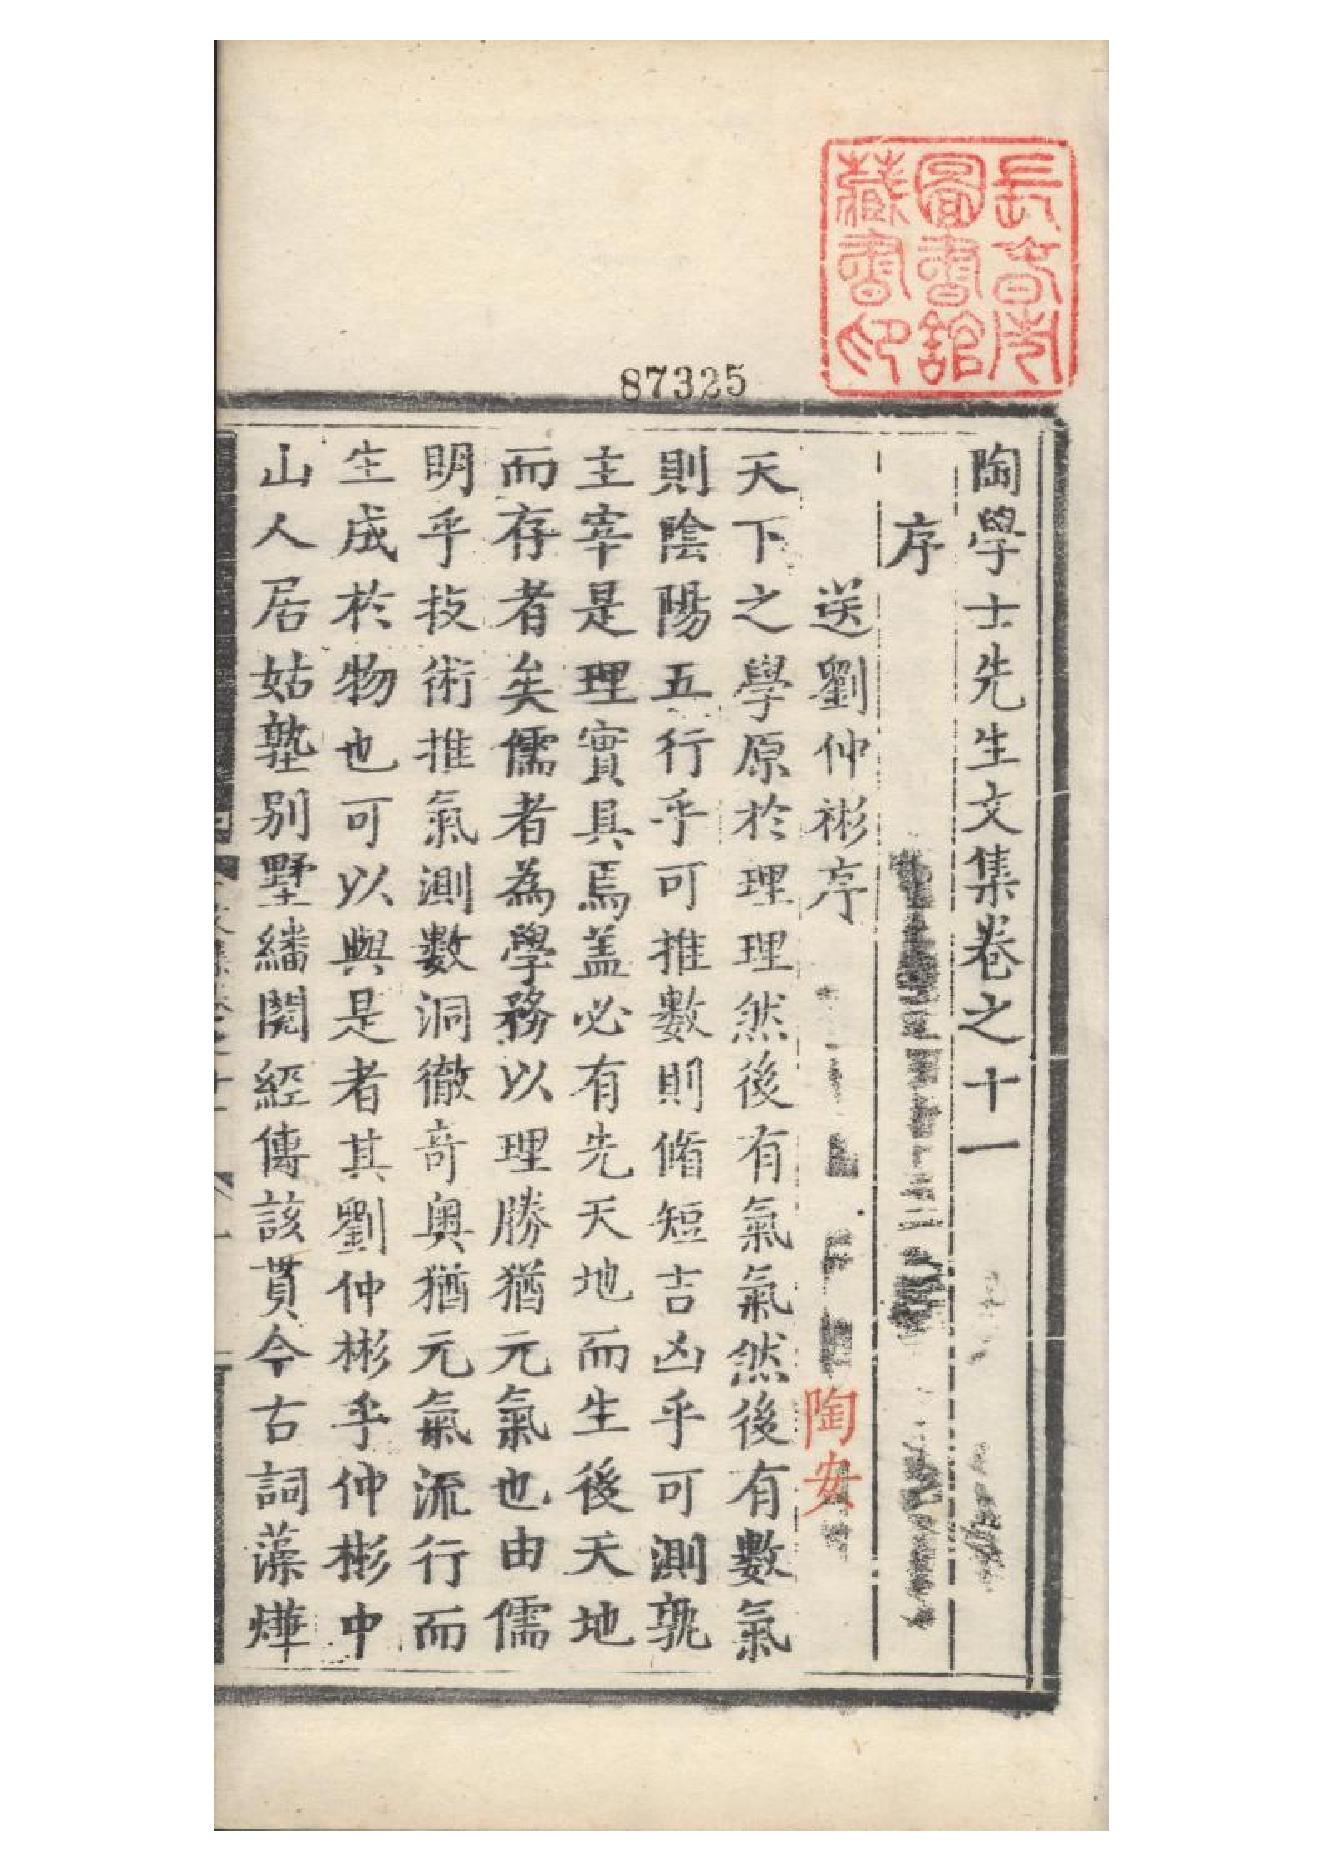 長春市
圖書館
藏書印
87325
陶學士先生文集卷之十一
序
送劉仲彬序
陶安
天下之學原於理理然後有氣氣然後有數氣
則陰陽五行乎可推數則脩短吉凶乎可測孰
主宰是理實具焉蓋必有先天地而生後天地
而存者矣儒者為學務以理勝猶元氣也由儒
明乎技術推氣測數洞徹奇奧猶元氣流行而
生成於物也可以與是者其劉仲彬乎仲彬中
山人居姑塾別墅繙閱經傳該貫今古詞藻燁